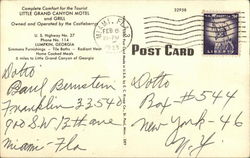 Complete Comfort for the Tourist
LITTLE GRAND CANYON MOTEL
and GRILL
Owned and Operated by the Castleberrys
U. S. Highway No. 27
Phone No. 114
LUMPKIN, GEORGIA
Simmons Furnishings - Tile Baths - Radiant Heat
Home Cooked Meals
8 miles to Little Grand Canyon of Georgia
32958
POST CARD
Dotto
Basil Bernstein
Franklin 33540
S.W. 13th ave
Miami - Fla
Dotto
Box #544
New York - 46
N.Y.